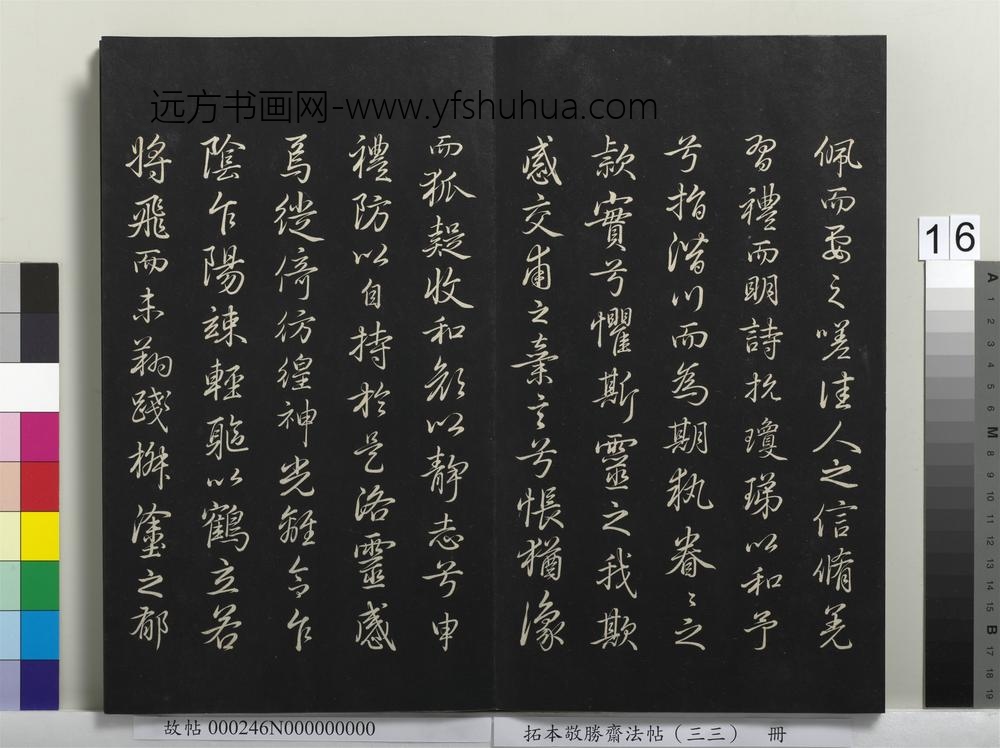 远方书画网-www.yfshuhua.com
佩而要之嗟佳人之信脩羌
習禮而明詩抗瓊珶以和予
兮指潛川而為期執眷〻之
款實兮懼斯靈之我欺
感交甫之棄言兮悵猶豫
而狐疑收和顏以靜志兮申
禮防以自持於是洛靈感
焉徙倚彷徨神光離合乍
陰乍陽竦輕軀以鶴立若
將飛而未翔踐椒塗之郁
16
A 1 2 3 4 5 M 7 8 9 10 11 12 13 14 15 B 17 18 19
故帖 000246N000000000
拓本敬勝齋法帖（三三） 冊